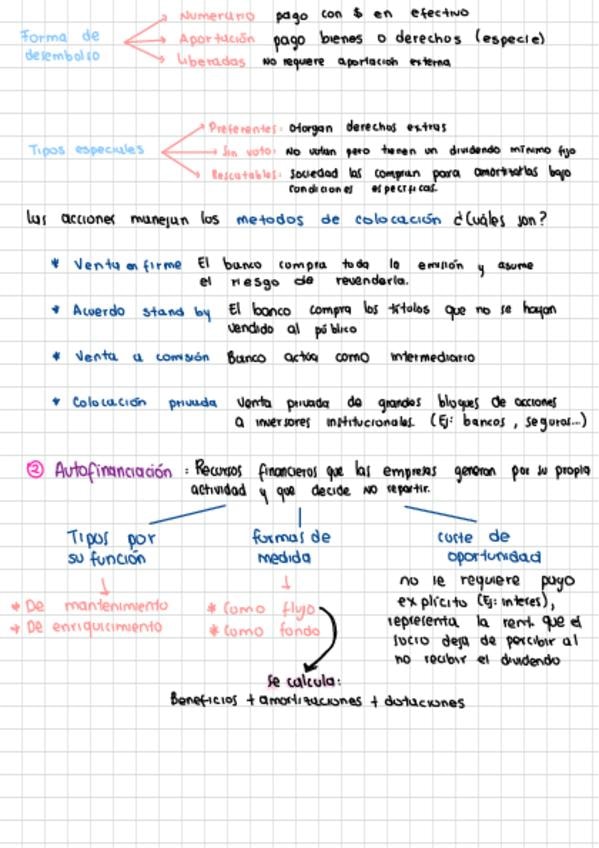 Numerario pago con $ en efectivo
Forma de desembolso
Aportación pago bienes o derechos (especie)
Liberadas No requiere aportación externa
Preferentes: otorgan derechos extras
Tipos especiales
Sin voto: No votan pero tienen un dividendo mínimo fijo
Rescatables: Sociedad las compran para amortizarlas bajo
condiciones específicas.
las acciones manejan los metodos de colocación ¿Cuáles son?
* Venta en firme El banco compra toda la emisión y asume
el riesgo de revenderla.
* Acuerdo stand by El banco compra los títulos que no se hayan
vendido al público
* Venta a comisión Banco actúa como intermediario
* Colocación privada Venta privada de grandes bloques de acciones
a inversores institucionales. (Ej: bancos, seguros...)
② Autofinanciación : Recursos financieros que las empresas generan por su propia
actividad y que decide NO repartir.
Tipos por
su función
* De mantenimiento
* De enriquecimiento
formas de
medida
* Como flujo
* Como fondo
Se calcula:
Beneficios + amortizaciones + dotaciones
coste de
oportunidad
no le requiere pago
explícito (Ej: interes),
representa la rent. que el
socio deja de percibir al
no recibir el dividendo